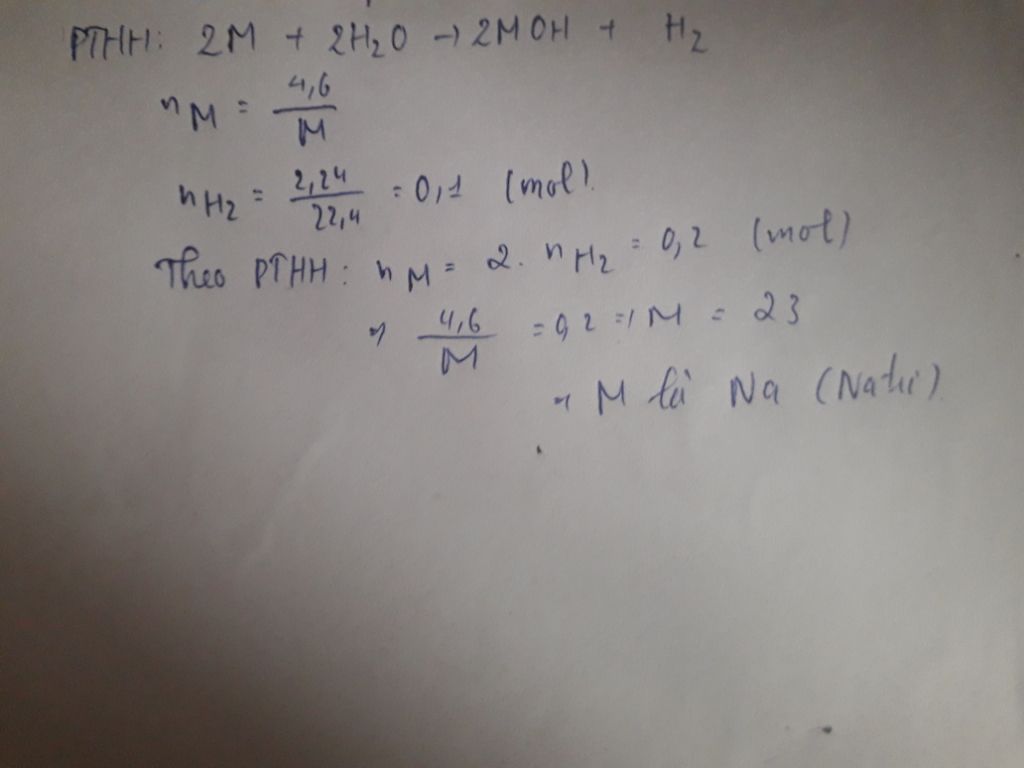 PTHH: 2M + 2H₂O → 2MOH + H₂
nM = 4,6/M
nH₂ = 2,24/22,4 = 0,1 (mol).
Theo PTHH: nM = 2. nH₂ = 0,2 (mol)
⇒ 4,6/M = 0,2 ⇒ M = 23
⇒ M là Na (Natri).